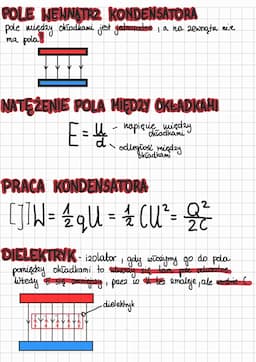 POLE WEWNĄTRZ KONDENSATORA
pole między okładkami jest jednorodne, a na zewnątrz nie
ma pola!
NATĘŻENIE POLA MIĘDZY OKŁADKAMI
E = U/d
napięcie między
okładkami
odległość między
okładkami
PRACA KONDENSATORA
[J] W = 1/2 qU = 1/2 CU² = Q²/2C
DIELEKTRYK - izolator, gdy włożymy go do pola
pomiędzy okładkami to
wtedy , przez to U też zmaleje, ale
dielektryk